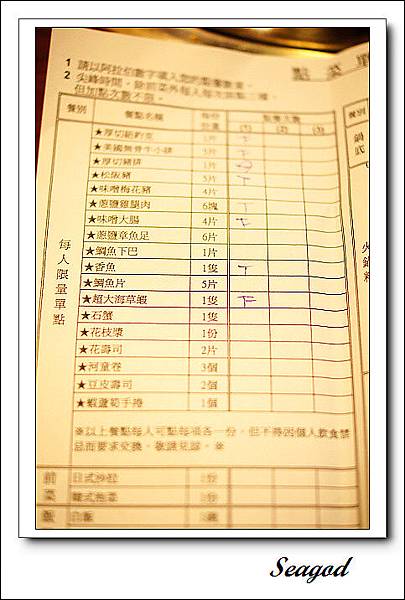 1 請以阿拉伯數字填入您的點餐數量。
2 尖峰時間，除前菜外每人每次限點三種，
但加點次數不限。
點菜單
餐別 餐點名稱 每份份量 點餐次數
(1) (2) (3)
每人限量單點
★厚切紐約克 1片
★美國無骨牛小排
★厚切豬排 1片
★松阪豬 5片
★味噌梅花豬 4片
★蔥鹽雞腿肉 6塊
★味噌大腸 4片
★蔥鹽章魚足 6片
★鯛魚下巴 1片
★香魚 1隻
★鯛魚片 5片
★超大海草蝦 1隻
★石蟹 1隻
★花枝漿 1份
★花壽司 2片
★河童卷 3個
★豆皮壽司 2個
★蝦蘆筍手捲 1個
※以上餐點每人可點每項各一份，但不得因個人飲食禁
忌而要求兌換，敬請見諒。※
前菜 日式沙拉 1份
韓式泡菜 1份
飯 白飯 1碗
Seagod